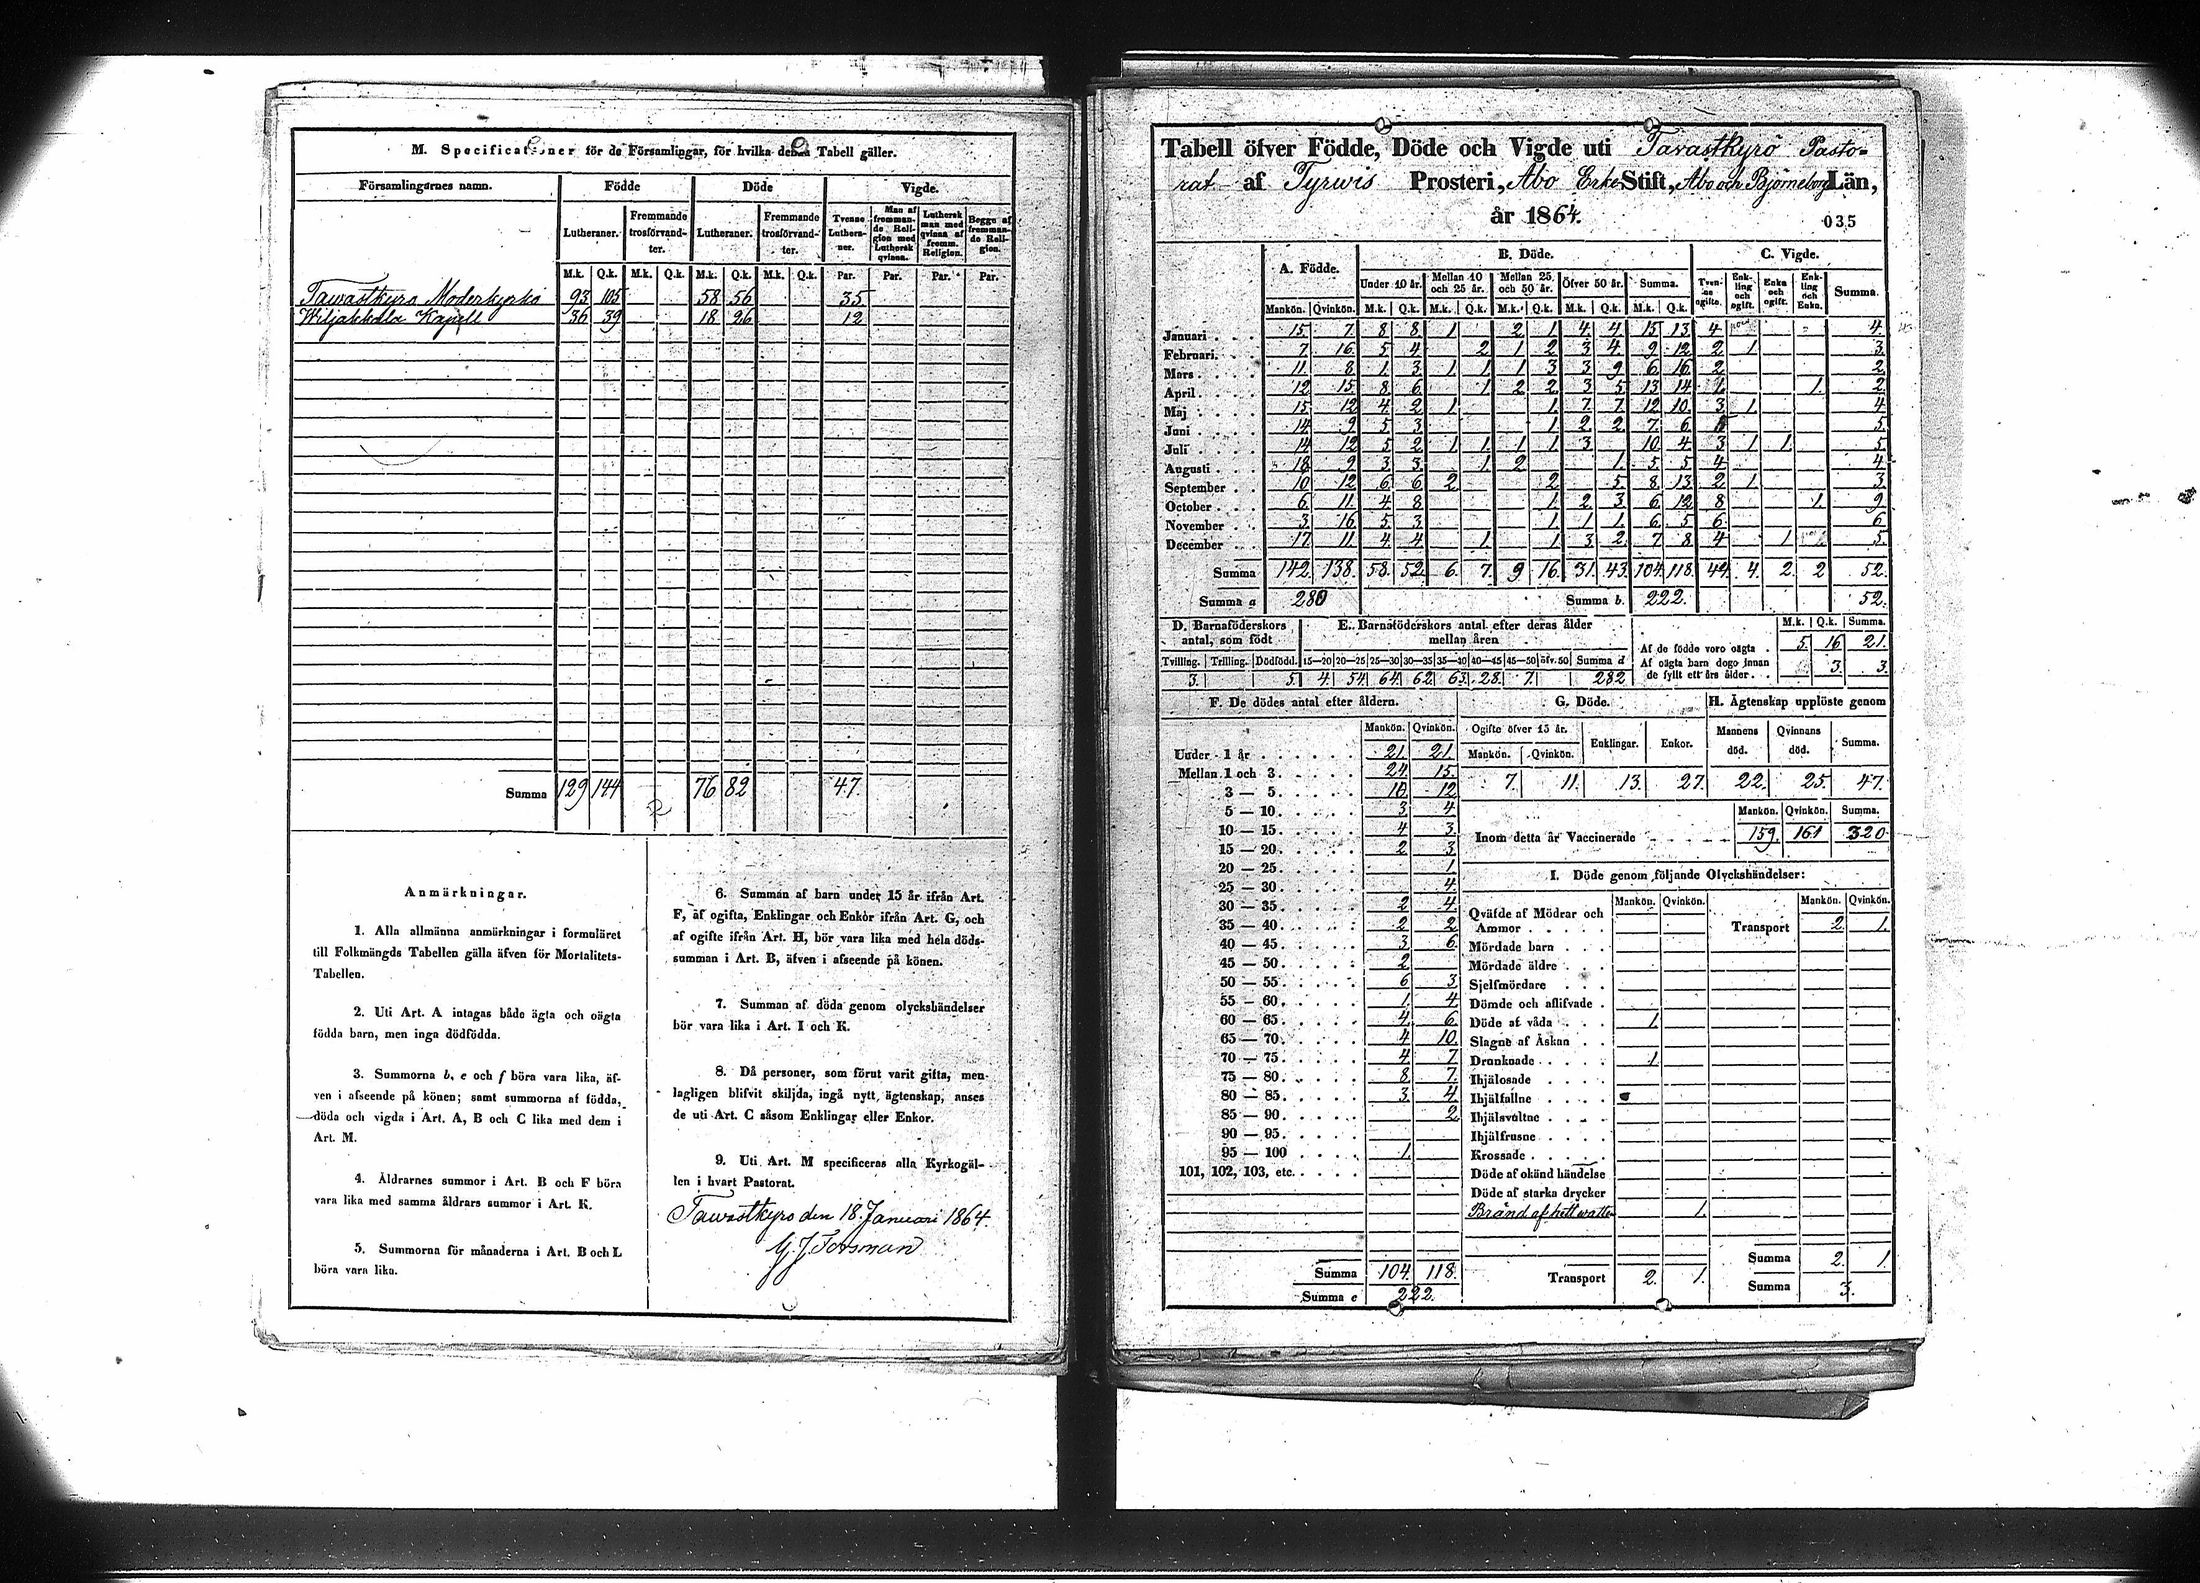 M. Specificationer för de Församlingar, för hvilka denna Tabell gäller.
Församlingarnes namn. Födde Döde Vigde.
Lutheraner. Fremmande trosförvandter. Lutheraner. Fremmande trosförvandter. Tvenne Lutheraner. Man af fremmande Religion med Luthersk qvinna. Luthersk man med qvinna af fremm. Religion. Begge af fremmande Religion.
M.k. Q.k. M.k. Q.k. M.k. Q.k. M.k. Q.k. Par. Par. Par. Par.
Tawastkyro Moderkyrka 93 105 58 56 35
Wiljakkala Kapell 36 39 18 26 12
Summa 129 144 76 82 47
Anmärkningar.
1. Alla allmänna anmärkningar i formuläret
till Folkmängds Tabellen gälla äfven för Mortalitets-
Tabellen.
2. Uti Art. A intagas både ägta och oägta
födda barn, men inga dödfödda.
3. Summorna b, e och f böra vara lika, äf-
ven i afseende på könen; samt summorna af födda,
döda och vigda i Art. A, B och C lika med dem i
Art. M.
4. Åldrarnes summor i Art. B och F böra
vara lika med samma åldrars summor i Art. K.
5. Summorna för månaderna i Art. B och L
böra vara lika.
6. Summan af barn under 15 år ifrån Art.
F, af ogifta, Enklingar och Enkor ifrån Art. G, och
af ogifte ifrån Art. H, bör vara lika med hela döds-
summan i Art. B, äfven i afseende på könen.
7. Summan af döda genom olyckshändelser
bör vara lika i Art. I och K.
8. Då personer, som förut varit gifta, men
lagligen blifvit skiljda, ingå nytt ägtenskap, anses
de uti Art. C såsom Enklingar eller Enkor.
9. Uti Art. M specificeras alla Kyrkogäl-
len i hvart Pastorat.
Tawastkyro den 18 Januari 1864.
G. J. Forsman
Tabell öfver Födde, Döde och Vigde uti Tavastkyrö Pasto-
rat af Tyrwis Prosteri, Åbo Erke Stift, Åbo och Björneborgs Län,
år 1864.
035
A. Födde. B. Döde. C. Vigde.
Under 10 år. Mellan 10 och 25 år. Mellan 25 och 50 år. Öfver 50 år. Summa. Tvenne ogifte. Enkling och ogift. Enka och ogift. Enkling och Enka. Summa.
Mankön. Qvinkön. M.k. Q.k. M.k. Q.k. M.k. Q.k. M.k. Q.k. M.k. Q.k.
Januari 15 7 8 8 1 2 1 4 4 15 13 4 4
Februari 7 16 5 4 2 1 2 3 4 9 12 2 1 3
Mars 11 8 1 3 1 1 1 3 3 9 6 16 2 2
April 12 15 8 6 1 2 2 3 5 13 14 1 1 2
Maj 15 12 4 2 1 1 7 7 12 10 3 1 4
Juni 14 9 5 3 1 2 2 7 6 5
Juli 14 12 5 2 1 1 1 1 3 10 4 3 1 1 5
Augusti 18 9 3 3 1 2 1 5 5 4 4
September 10 12 6 6 2 2 5 8 13 2 1 3
October 6 11 4 8 1 2 3 6 12 8 1 9
November 3 16 5 3 1 1 1 6 5 6 6
December 17 11 4 4 1 1 3 2 7 8 4 1 5
Summa 142 138 58 52 6 7 9 16 31 43 104 118 44 4 2 2 52
Summa a 280 Summa b. 222. 52.
D. Barnaföderskors antal, som födt
E. Barnaföderskors antal efter deras ålder mellan åren
Tvilling. Trilling. Dödfödd. 15—20 20—25 25—30 30—35 35—40 40—45 45—50 öfv. 50 Summa d
3. 5. 4. 54. 64. 62. 63. 28. 7. 282
M.k. Q.k. Summa.
Af de födde voro oägta 5. 16 21.
Af oägta barn dogo innan de fyllt ett års ålder 3. 3.
F. De dödes antal efter åldern.
Mankön. Qvinkön.
Under 1 år 21. 21.
Mellan 1 och 3 24. 15.
3 — 5 10 12
5 — 10 3 4
10 — 15 4 3
15 — 20 2 3
20 — 25 1
25 — 30 4
30 — 35 2 4
35 — 40 2 2
40 — 45 3 6
45 — 50 2
50 — 55 6 3
55 — 60 1 4
60 — 65 4 6
65 — 70 4 10
70 — 75 4 7
75 — 80 8 7
80 — 85 3 4
85 — 90 2
90 — 95
95 — 100 1
101, 102, 103, etc.
Summa 104. 118.
Summa e 222.
G. Döde. H. Ägtenskap upplöste genom
Ogifte öfver 15 år. Enklingar. Enkor. Mannens död. Qvinnans död. Summa.
Mankön. Qvinkön.
7. 11. 13. 27. 22. 25. 47.
Mankön. Qvinkön. Summa.
Inom detta år Vaccinerade 159. 161 320
I. Döde genom följande Olyckshändelser:
Mankön. Qvinkön. Mankön. Qvinkön.
Qväfde af Mödrar och Ammor Transport 2. 1.
Mördade barn
Mördade äldre
Sjelfmördare
Dömde och aflifvade
Döde af våda 1.
Slagne af Åskan
Drunknade 1
Ihjälosade
Ihjälfallne
Ihjälsvultne
Ihjälfrusne
Krossade
Döde af okänd händelse
Döde af starka drycker
Bränd af hett watten 1.
Transport 2. 1.
Summa 2. 1.
Summa 3.